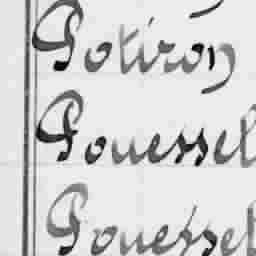 Potiron
Pouessel
Pouessel